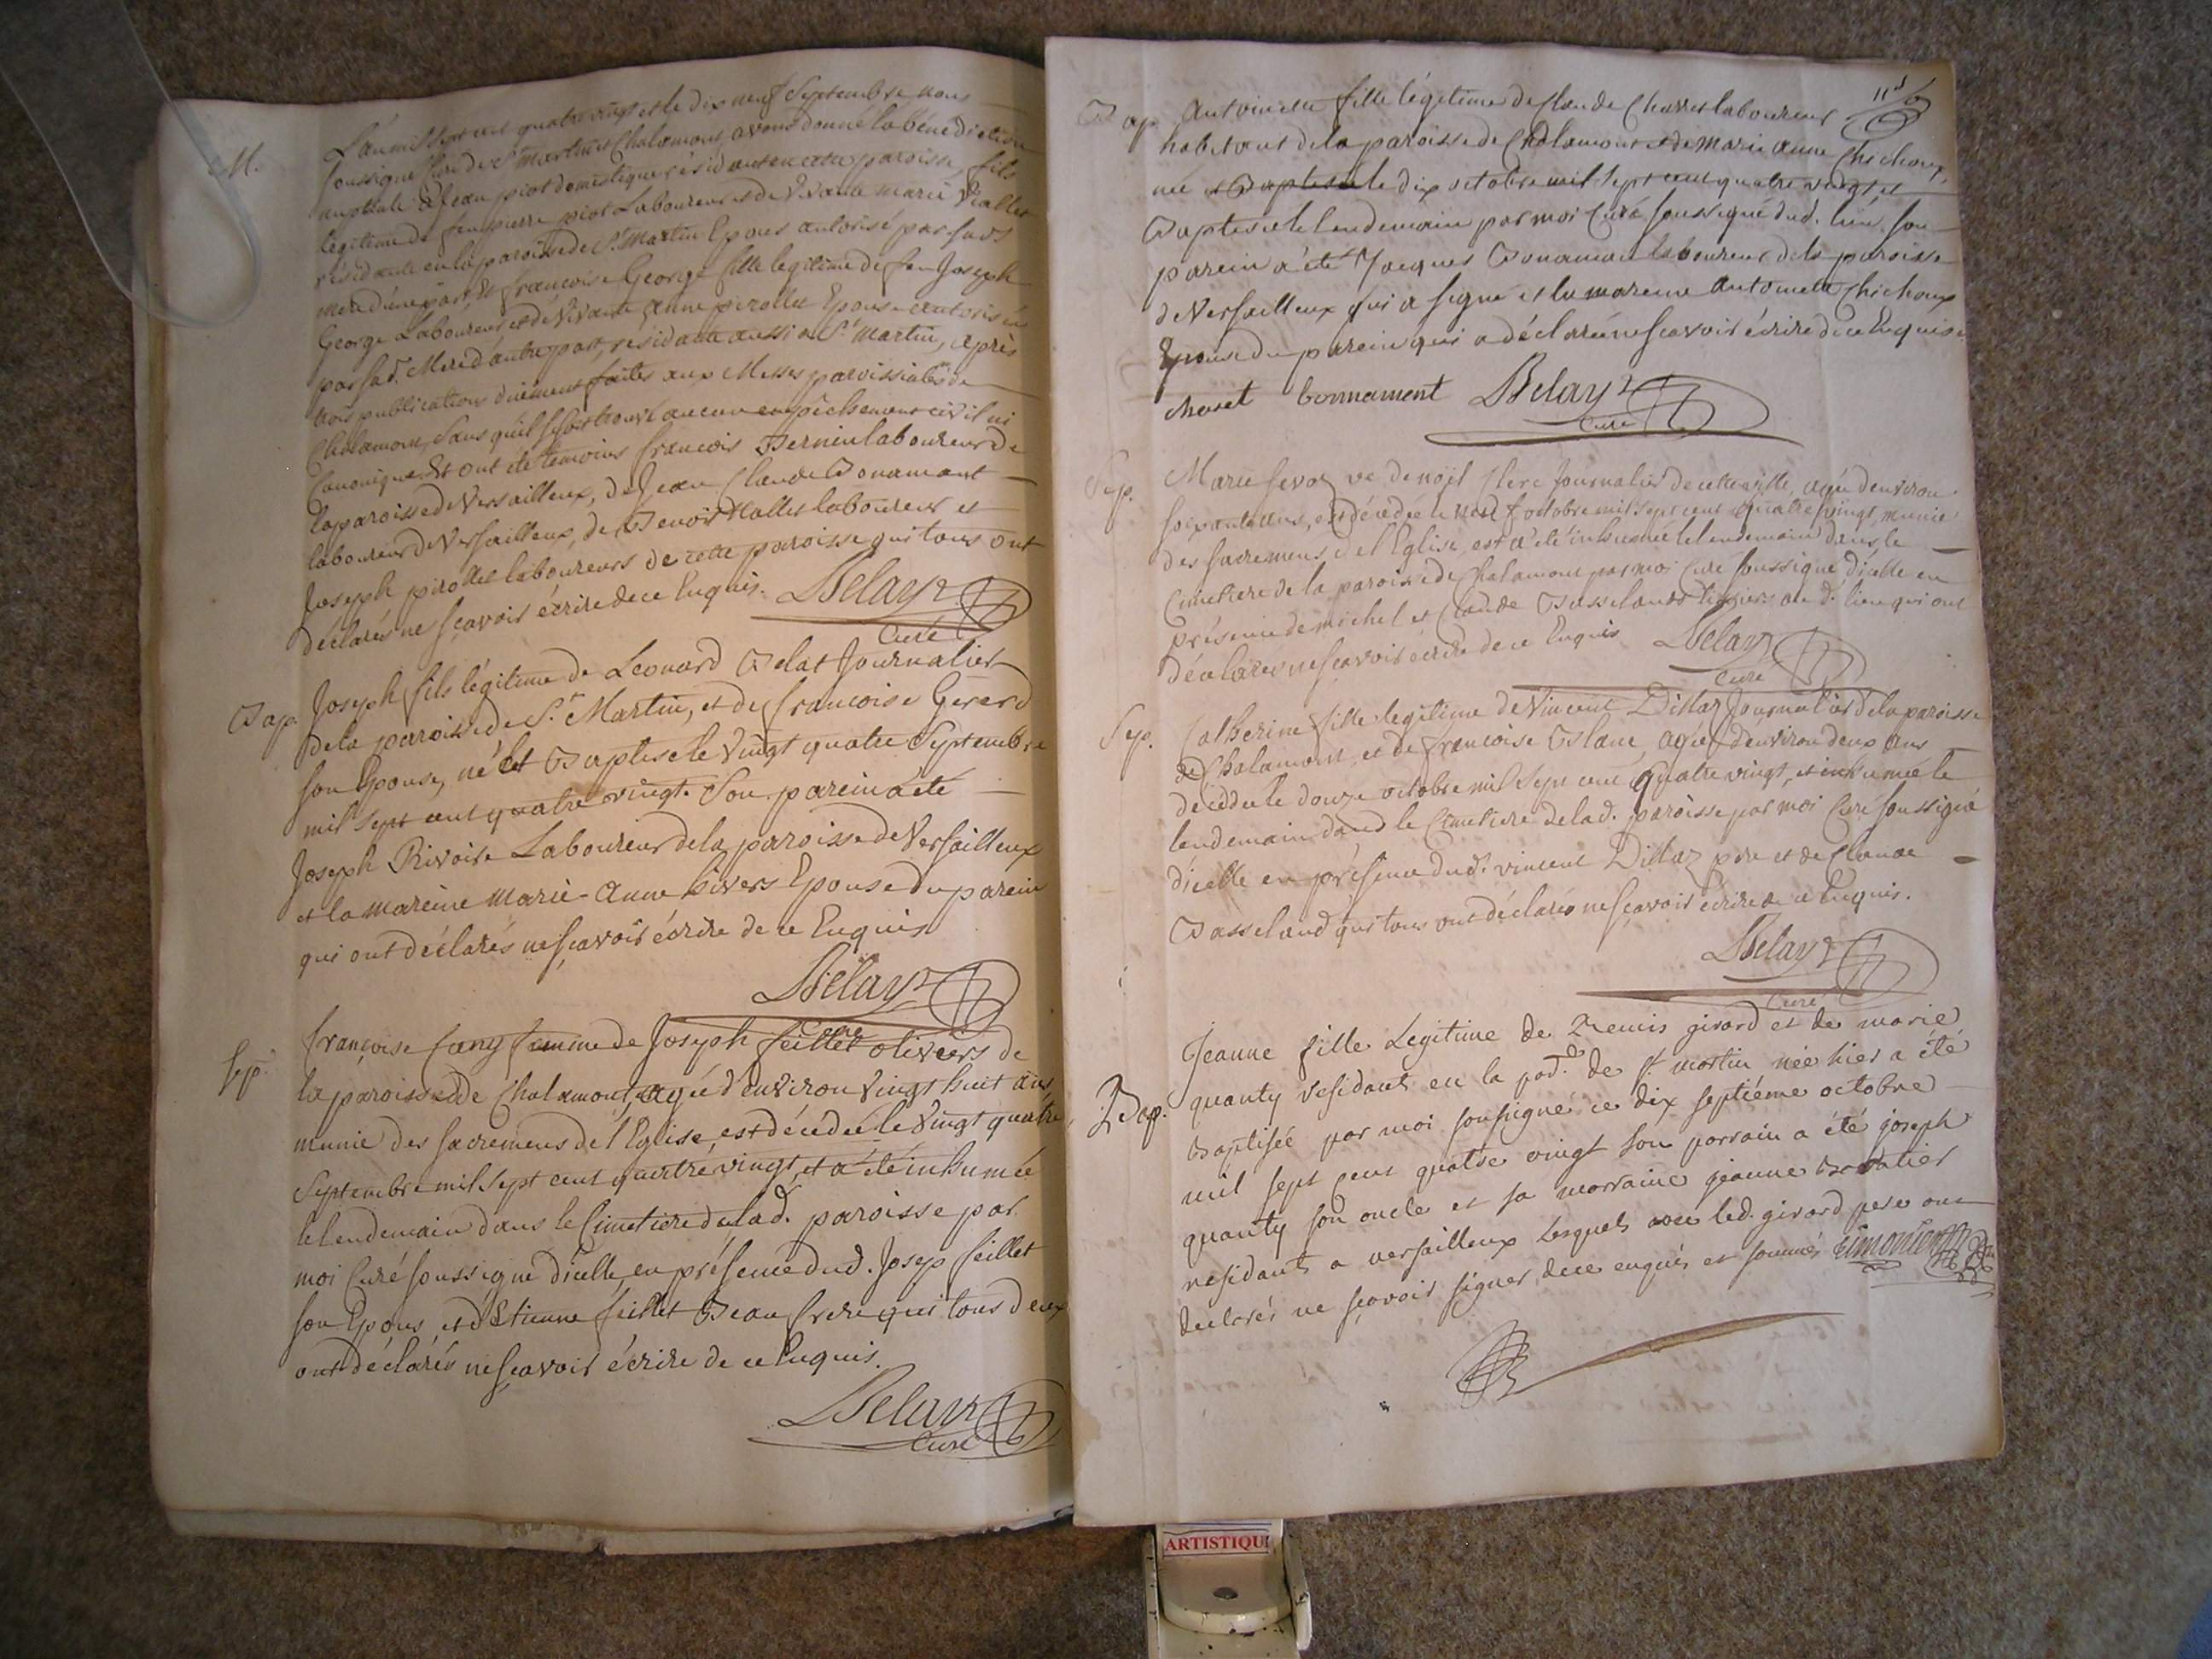 M.
L'an mil sept cent quatre vingt et le dix neuf Septembre nous
soussigné Curé de St Martin et Chalamont avons donné la bénédiction
nuptiale à Jean piot domestique résidant en cette paroisse, fils
légitime de feu pierre piot Laboureur et de Vivante marie Viallet
résidante en la paroisse de St. Martin Epoux autorisé par sad.
mere d'une part, Et françoise George fille légitime de feu Joseph
George Laboureur et de Vivante Anne pirollet Epouse autorisée
par sad. Mere d'autre part, résidante aussi a St. Martin, après
trois publications duement faites aux Messes paroissiales de
Chalamont, sans qu'il se soit trouvé aucun empêchement civil ni
Canonique Et ont été temoins françois Bernin laboureur de
la paroisse de Versailleux, de Jean Claude Bonamant
laboureur de Versailleux, de Benoit Viallet laboureur et
Joseph pirollet laboureurs de cette paroisse qui tous ont
déclarés ne sçavoir écrire de ce Enquis. Belay
Curé
Bap. Joseph fils légitime de Leonard Belat Journalier
de la paroisse de St. Martin, et de françoise Gerard
son Epouse, né et Baptisé le Vingt quatre Septembre
mil sept cent quatre vingt. Son parein a été
Joseph Rivoire Laboureur de la paroisse de Versailleux
et la mareine Marie-Anne hivers Epouse du parein
qui ont déclarés ne sçavoir écrire de ce Enquis
Belay
Curé
Sep. françoise femme de Joseph feillet de
la paroisse de Chalamont, agée d'environ Vingt huit ans
munie des sacremens de l'Eglise, est décédée le Vingt quatre
Septembre mil sept cent quatre vingt, et a été inhumée
le lendemain dans le Cimetiere de lad. paroisse par
moi Curé soussigné d'icelle en présence dud. Josep feillet
son Epous, et d'Etienne feillet Beau frere qui tous deux
ont déclarés ne sçavoir écrire de ce Enquis.
Belay
Curé
Bap. Antoinette fille légitime de Claude Charet laboureur
habitant de la paroisse de Chalamont et de Marie Anne Chichoux,
née le dix octobre mil sept cent quatre vingt et
Baptisée le lendemain par moi Curé soussigné dud. lieu. son
parein a été Jacques Bonamant laboureur de la paroisse
de Versailleux qui a signé et la mareine Antoinette Chichoux
Epouse du parein qui a déclarée ne sçavoir écrire de ce Enquise
bonnament Belay
Curé
Sep. Marie ve de noël Clerc Journalier de cette ville, agée d'environ
soixante ans, est décédée le neuf octobre mil sept cent quatre vingt, munie
des sacremens de l'Eglise, et a été inhumée le lendemain dans le
Cimetiere de la paroisse de Chalamont par moi Curé soussigné d'icelle en
présence de michel et Claude Basseland aud. lieu qui ont
déclarés ne sçavoir écrire de ce Enquis Belay
Curé
Sep. Catherine fille légitime de Vincent Dillaz Journalier de la paroisse
de Chalamont, et de françoise Blanc, agée d'environ deux ans
décédée le douze octobre mil sept cent quatre vingt, et inhumée le
lendemain dans le Cimetiere de lad. paroisse par moi Curé soussigné
d'icelle en présence dud. vincent Dillaz pere et de Claude
Basseland qui tous ont déclarés ne sçavoir écrire de ce Enquis.
Belay
Curé
Jeanne fille Legitime de Remis girard et de marie
Bap. quanty residants en la de St martin née hier a été
Baptisée par moi sousigné ce dix septiéme octobre
mil sept cent quatre vingt son parrain a été joseph
quanty son oncle et sa marraine jeanne
residants a versailleux Lesquels avec led. girard pere ont
declarés ne sçavoir signer dece enquis et sommés Simonier
ARTISTIQU